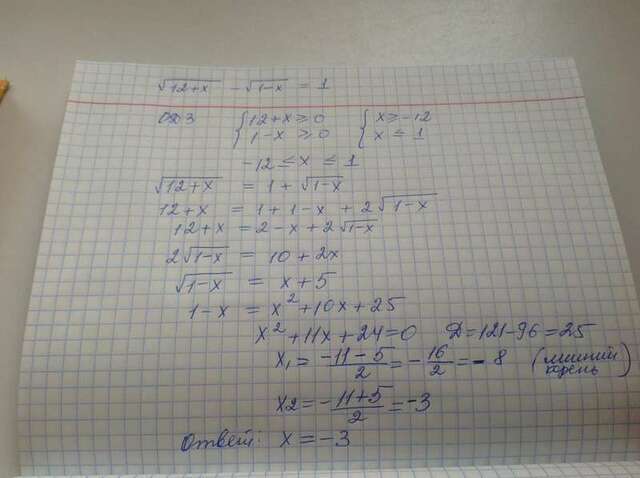 √12+x - √1-x = 1
ОДЗ {12+x ≥ 0 {x ≥ -12
1-x ≥ 0 x ≤ 1
-12 ≤ x ≤ 1
√12+x = 1 + √1-x
12+x = 1+1-x + 2√1-x
12+x = 2-x+2√1-x
2√1-x = 10+2x
√1-x = x+5
1-x = x²+10x+25
x²+11x+24=0 Д=121-96=25
x₁ = -11-5/2 = -16/2 = -8 (лишний корень)
x2 = -11+5/2 = -3
Ответ: x = -3